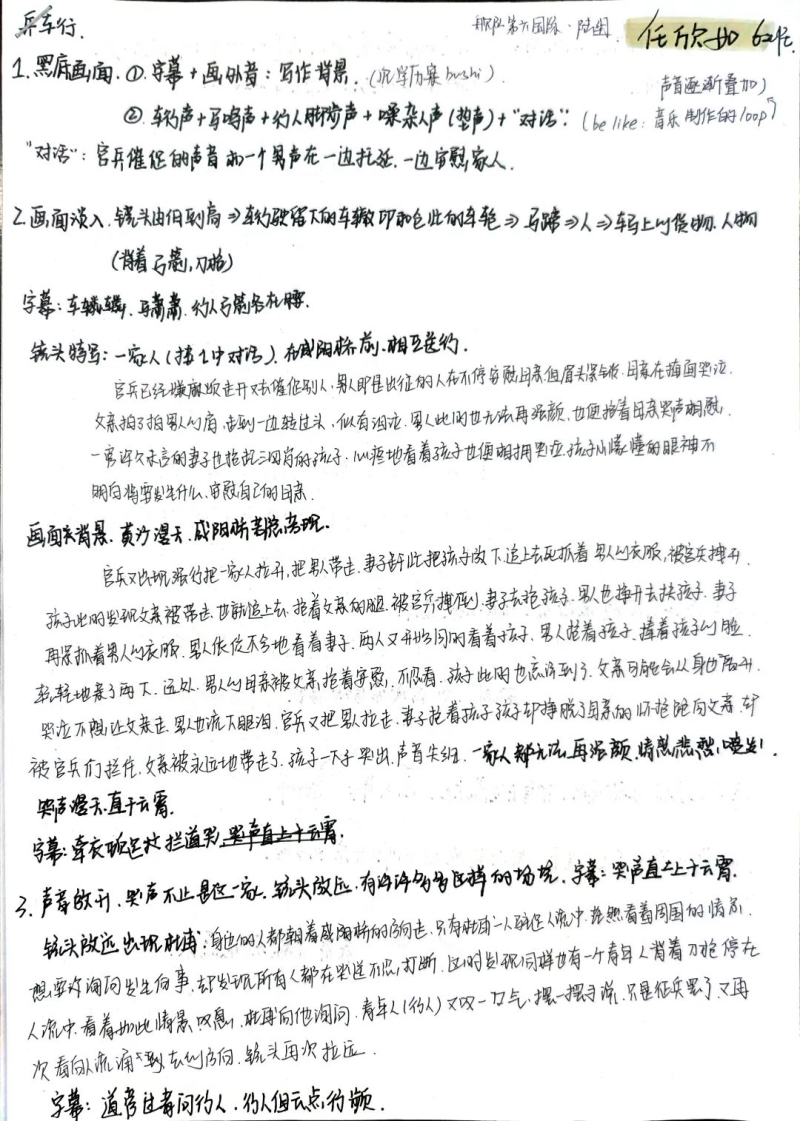 兵车行.
任欣如 62代
1.黑底画面.①.字幕+画外音:写作背景.(沉浮历案 hushi).
声音逐渐叠加)
②.车轮声+马鸣声+行人脚步声+嘈杂人声(垫声)+"对话".(be like:音乐制作的loop
"对话":官兵催促的声音和一个男声在一边拖延.一边安慰家人.
2.画面淡入.镜头由低到高⇒车行驶留下的车辙印和在此的车轮⇒马蹄⇒人⇒车马上的货物.人物
(背着弓箭,刀枪)
字幕:车辚辚,马萧萧,行人弓箭各在腰.
镜头特写:一家人(接1中对话).在咸阳桥前.相互送行.
官兵已经嫌麻烦走开又去催促别人,男人即是出征的人在不停安慰母亲但眉头深锁.母亲在掩面哭泣.
父亲拍了拍男人的肩,走到一边转过头,似有泪泣.男人此时也无法再强颜,也便抱着母亲哭声相慰.
一旁许久未言的妻子也抱起三四岁的孩子.心疼地看着孩子也便相拥哭泣.孩子以懵懂的眼神不
明白将要发生什么,安慰自己的母亲.
画面夹背景.黄沙漫天.咸阳桥若隐若现.
官兵又出现强行把一家人拉开,把男人带走.妻子舒此把孩子放下追上去死抓着男人的衣服,被官兵推开.
孩子此时发现父亲被带走也就追上去.抱着父亲的腿.被官兵撞倒.妻子去抱孩子.男人也挣开去扶孩子.妻子
再紧抓着男人的衣服.男人依依不舍地看着妻子.两人又不约而同的看着孩子.男人抱着孩子.捧着孩子的脸.
轻轻地亲了两下.远处.男人的母亲被父亲抱着安慰,不忍看.孩子此时也意识到了.父亲可能会从身边离开.
哭泣不想让父亲走.男人也流下眼泪.官兵又把男人拉走.妻子抱着孩子孩子却挣脱了母亲的怀抱跑向父亲.却
被官兵们拦住.父亲被永远地带走了.孩子一下子哭出,声音失细.一家人都无法再强颜,情感悲烈,喷发!
哭声漫天.直干云霄.
字幕:牵衣顿足拦道哭,哭声直上干云霄.
3.声音放开.哭声不止是这一家.镜头放远,有许许多多这样的场境.字幕:哭声直上干云霄.
镜头放远出现杜甫,身边的人都朝着咸阳桥的方向走.只有杜甫一人驻足人流中.茫然看着周围的情景.
想要询问发生何事.却发现所有人都在哭送不忍打断.这时发现同样也有一个青年人背着刀枪停在
人流中.看着如此情景叹息.杜甫向他询问.青年人(行人)又叹一口气,摆一摆手说.只是征兵罢了.又再
次看向人流涌动到去的方向.镜头再次拉远.
字幕:道旁过者问行人,行人但云点行频.